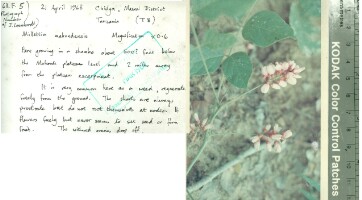 2 April 1968 Chidya, Masasi District
Tanzania (T 8)
Millettia makondensis Magnification × 0.6
Rare growing in a shamba above feet below
the Makonde plateau level and 2 miles away
from the plateau escarpment.
It is very common here as a weed, regenerates
freely from the ground. The shoots are always
prostrate but do not root themselves at nodes. It
flowers freely but never seems to set seed or form
fruit. The withered ovaries drop off.
KODAK Color Control Patches